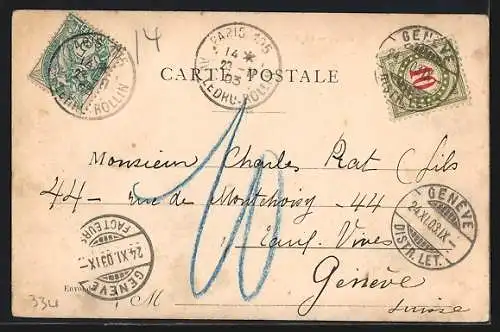 14
PARIS 125
14
23
03
AV. LEDRU-ROLLIN
ROLLIN
GENÈVE
10
CARTE POSTALE
Monsieur Charles Rat fils
44 - rue de Montchoisy - 44
Eaux Vives
Genève
Suisse
10
GENÈVE
24.XI.03.IX-
DISTR. LET.
FACTEURS
24.XI.03.IX-
GENÈVE
334
Envoi
M